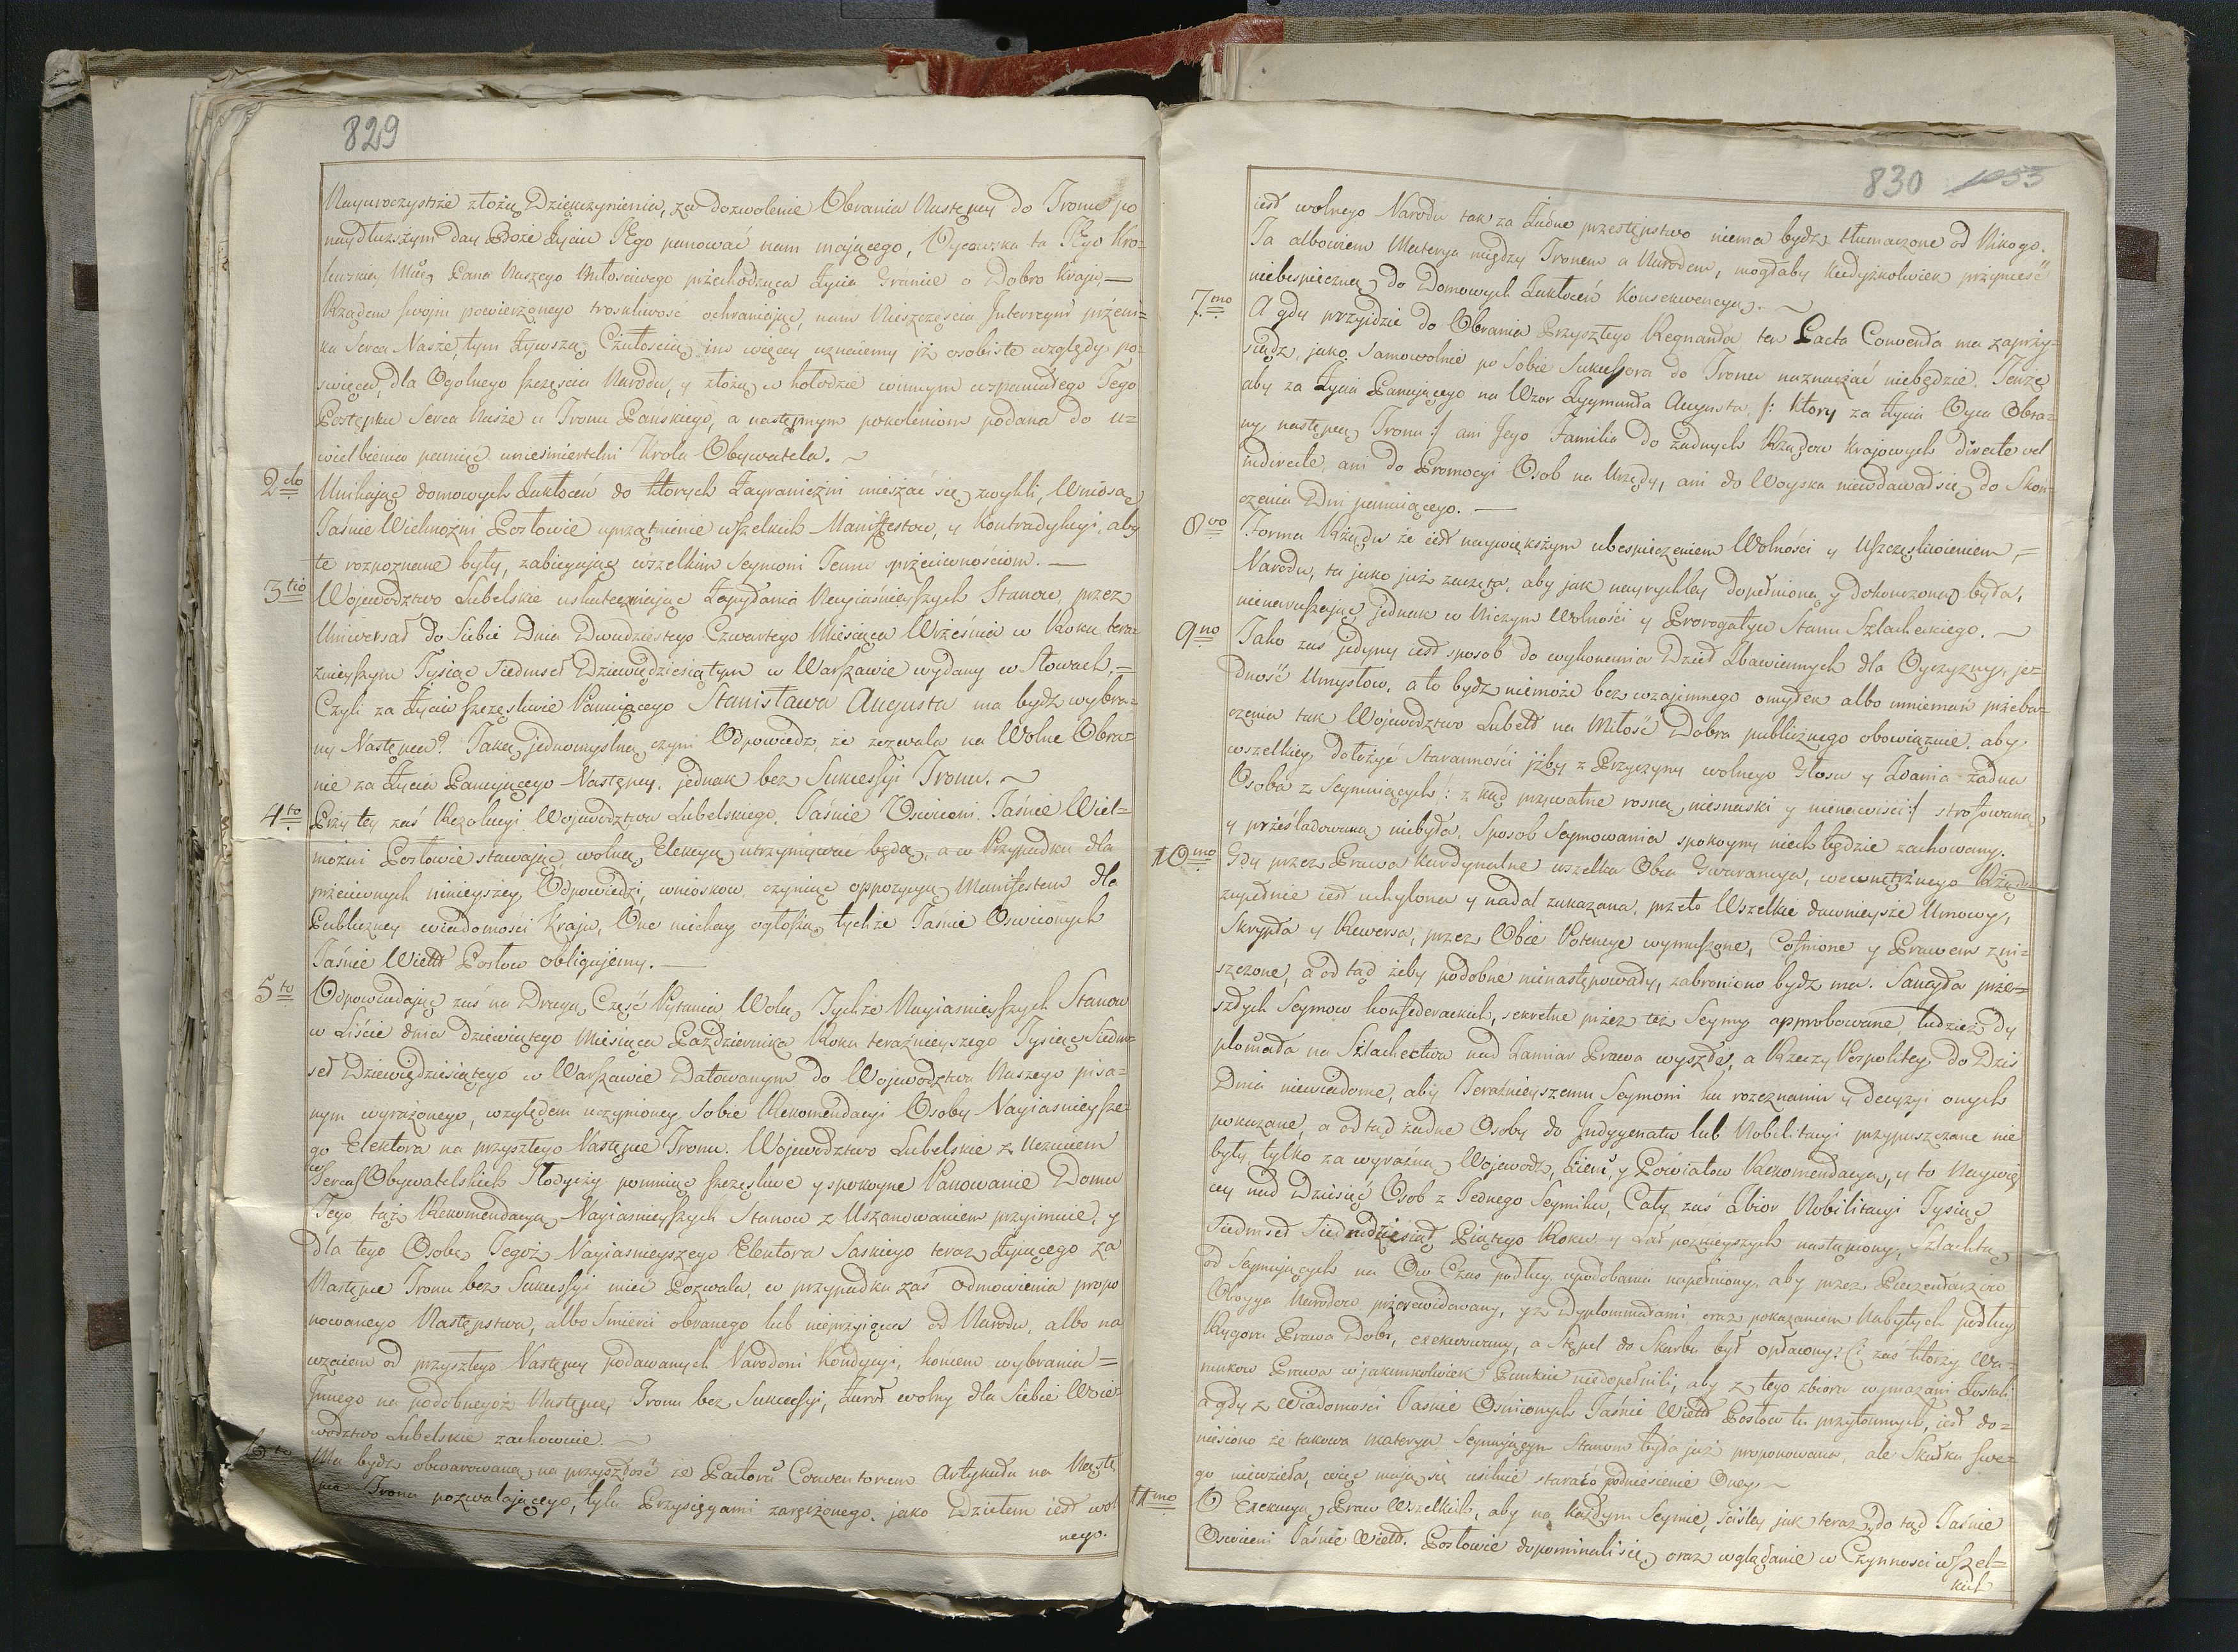 829
Nayuroczystsze złożą Dziękczynienia, za dozwolenie Obrania Następcy do Tronu po
naydłuższym day Boże Życiu JEgo panować nam mającego, Oycowska ta JEgo Kro-
lewskiey Mści Pana Naszego Miłościwego przechodząca Życia Granice o Dobro Kraju,
Rządem swojm powierzonego troskliwosc ochraniając, nam Nieszczęscia Interregni przeni-
ka Serca Nasze, tym Żywszą Czułoscią im więcey uznaiemy jż osobiste względy po-
swięca, dla Ogolnego szczęscia Narodu, y złożą w hołodzie winnym wspaniałego Tego
Postępku Serca Nasze u Tronu Pańskiego, a następnym pokoleniom podana do u=
wielbienia pamięć unieśmiertelni Krola Obywatela.
2do Unikając domowych Zakłoceń do których Zagraniczni mieszać się zwykli, Wniosą
Jaśnie Wielmożni Posłowie uprzątnienie wszelkich Manifestow, y Kontradykcyi, aby
te rozpoznane były, zabiegając wszelkim Seymoni Temu sprzeciwnościom.
3tio Wojewodztwo Lubelskie uskuteczniając Zapytania Nayiaśnieyszych Stanow, przez
Uniwersał do Siebie Dnia Dwudziestego Czwartego Miesiąca Wrześnie w Roku tera-
znieyszym Tysiąc Siedmset Dziewiędziesiątym w Warszawie wydany w Słowach,=
Czyli za Życia szczęsliwie Panuiącego Stanisława Augusta ma bydz wybra-
ny Następca? Taką jednomyslną czyni Odpowiedz, że zezwala na Wolne Obra-
nie za Życia Panującego Następcy, jednak bez Sukcessyi Tronu.
4to Przy tey zaś Rezolucyi Wojewodztwa Lubelskiego, Jaśnie Oswieceni Jaśnie Wiel-
możni Posłowie stawając wolną Elekcyą utrzymywac będą, a w Przypadku dla
przeciwnych ninieyszey Odpowiedzi, wnioskow czyniąc oppozycyą Manifestem dla
Publiczney wiadomości Kraju, One niechay ogłoszą tychże Jaśnie Oswieconych
Jaśnie Wielld Posłow obligujemy.
5to Odpowiadając zaś na Drugą Część Pytania, Wolą Tychże Nayiasnieyszych Stanow
w Liście dnia dziewiątego Miesiąca Października Roku teraznieyszego Tysiąc Siedm-
set Dziewiędziesiątego w Warszawie Datowanym do Wojewodztwa Naszego pisa-
nym wyrażonego, względem uczynioney Sobie Rekomendacyi Osoby Nayiasnieysze-
go Elektora na przyszłego Następce Tronu. Wojewodztwo Lubelskie z Uczuciem
w Sercach Obywatelskich Słodyczy pomniąc szczęsliwe y spokoyne Panowanie Domu
Tego tąż Rekomendacyą Nayiasnieyszych Stanow z Uszanowaniem przyimuie, y
dla tego Osobę Tegoż Nayiasnieyszego Elektora Saskiego teraz Żyjącego za
Następce Tronu bez Sukcessyi miec Pozwala, w przypadku zaś odmowienia propo
nowanego Następstwa, albo Smierci obranego lub nieprzyięcia od Narodu, albo na
wzaiem od przyszłego Następcy podawanych Narodowi Kondycyi, koncem wybrania=
Jnnego na podobnegoż Następcę Tronu bez Sukcessyi, Zwrot wolny dla Siebie Woie-
wodztwo Lubelskie zachowuie.
6to Ma bydz obwarowaną na przyszłość ze Pactorũ Conventorum Artykuła na Nastę
pce Tronu pozwalającego, tylu Przysięgami zaręczonego, jako Dziełem iest wol
nego.
830 1053
iest wolnego Narodu tak za Żadne przestępstwo niema bydz tłumaczone od Nikogo.
Ta albowiem Materya między Tronem a Narodem, mogłaby kiedyżkolwiek przynieść
niebespieczną do Domowych Zakłoceń Konsekwencyą.
7mo A gdy przyjdzie do Obrania Przyszłego Regnanta, ten Pacta Conventa ma zaprzy-
siądz, jako samowolnie po sobie Sukcessora do Tronu naznaczać niebędzie. Tenże
aby za Życia Panującego na Wzor Zygmunta Augusta, /: ktory za Życia Oyca Obra-
ny następcą Tronu :/ ani Jego Familia do żadnych Rządow Krajowych directe vel
indirecte, ani do Promocyi Osob na Urzędy, ani do Woyska niewdawał się do Skon-
czenia Dni panuiącego.
8vo Forma Rządu że iest naywiększym ubespieczeniem Wolności y Uszczęsliwieniem,=
Narodu, ta jako już zaczęta, aby jak nayrychley dopełnioną y dokonczoną była,
nienaruszając jednak w Niczym Wolności y Prerogatyw Stanu Szlacheckiego.
9no Jako zaś jedyny iest sposob do wykonania Dzieł Zbawiennych dla Oyczyzny, je-
dność Umysłow, a to bydz niemoże bez wzajemnego omyłek albo mniemań przeba-
czenia tak Wojewodztwo Lubell na Miłość Dobra publicznego obowiązuie, aby
wszelkiey dołożyć Staranności jżby z Przyczyny wolnego Głosu y Zdania żadna
Osoba z Seymuiących /: z kąd prywatne rosną niesnaski y nienawisci :/ strofowaną
y prześladowaną niebyła, sposob Seymowania spokoyny niech będzie zachowany.
10mo Gdy przez Prawa Kardynalne wszelka Obca Gwarancya, wewnętrznego Rządu
zupełnie iest uchylona y nadal zakazana, przeto Wszelkie dawnieysze Umowy,
Skrypta y Rewersa, przez Obce Potencye wymuszone, Cofnione y Prawem zni-
szczone, a od tąd żeby podobne nienastępowały, zabroniono bydz ma. Sancyta prze=
szłych Seymow konfederackich, sekretne przez też Seymy approbowane, tudzież dy
plomata na Szlachectwa nad Zamiar Prawa wyszłe, a Rzeczy Pospolitey do Dzis
Dnia niewiadome, aby Teraźnieyszemu Seymowi ku rozeznaniu y decyzyi onych
pokazane, a od tąd żadne Osoby do Jndygenatu lub Nobilitacyi przypuszczane nie
były, tylko za wyraźną Wojewodz, Ziemi y Powiatow Rekomendacyą, y to Naywię
cey nad Dziesięć Osob z Jednego Seymiku, Cały zaś Zbior Nobilitacyi Tysiąc
Siedmset Siedmdziesiąt Piątego Roku y Lat poznieyszych nastąpiony, Szlachtą
od Seymujących na Ow Czas podług upodobania napełniony, aby przez Pieczentarzow
Oboyga Narodow przerewidowany, y z Dyplommatami oraz pokazaniem Nabytych podług
Rygoru Prawa Dobr, exekwowany, a Stępel do Skarbu był opłacony. Ci zaś ktorzy Wa-
runkow Prawa w jakimkolwiek Punkcie niedopełnili, aby z tego zbioru wymazani Zostali,
a gdy z Wiadomości Jasnie Oswieconych Jaśnie Wielld Posłow tu przytomnych, iest do-
niesiono że takowa materya Seymującym Stanom była już proponowana, ale Skutku swe-
go niewzieła, więc mają się usilnie starać o podniesienie Oney.
11mo O Exekucyą Praw Wszelkich, aby na każdym Seymie, ściśley jak teraz y do tąd Jaśnie
Oswieceni Jaśnie Wielld. Posłowie dopominali się, oraz wglądanie w Czynnosci wszel=
kich